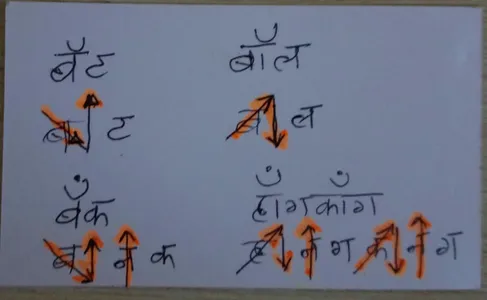 बॅट बॉल
ब ट ब ल
बॅंक हॉंगकॉंग
ब न क ह न ग क न ग